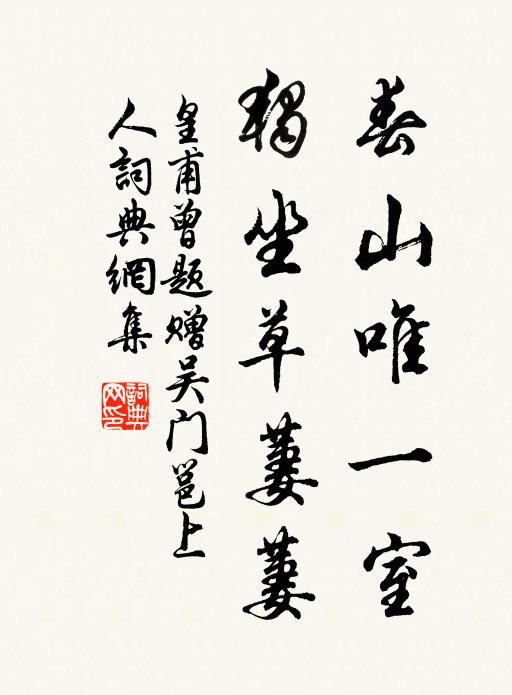 春山唯一室
獨坐草萋萋
皇甫曾題贈吴门邕上
人詞典網集
詞典
网印